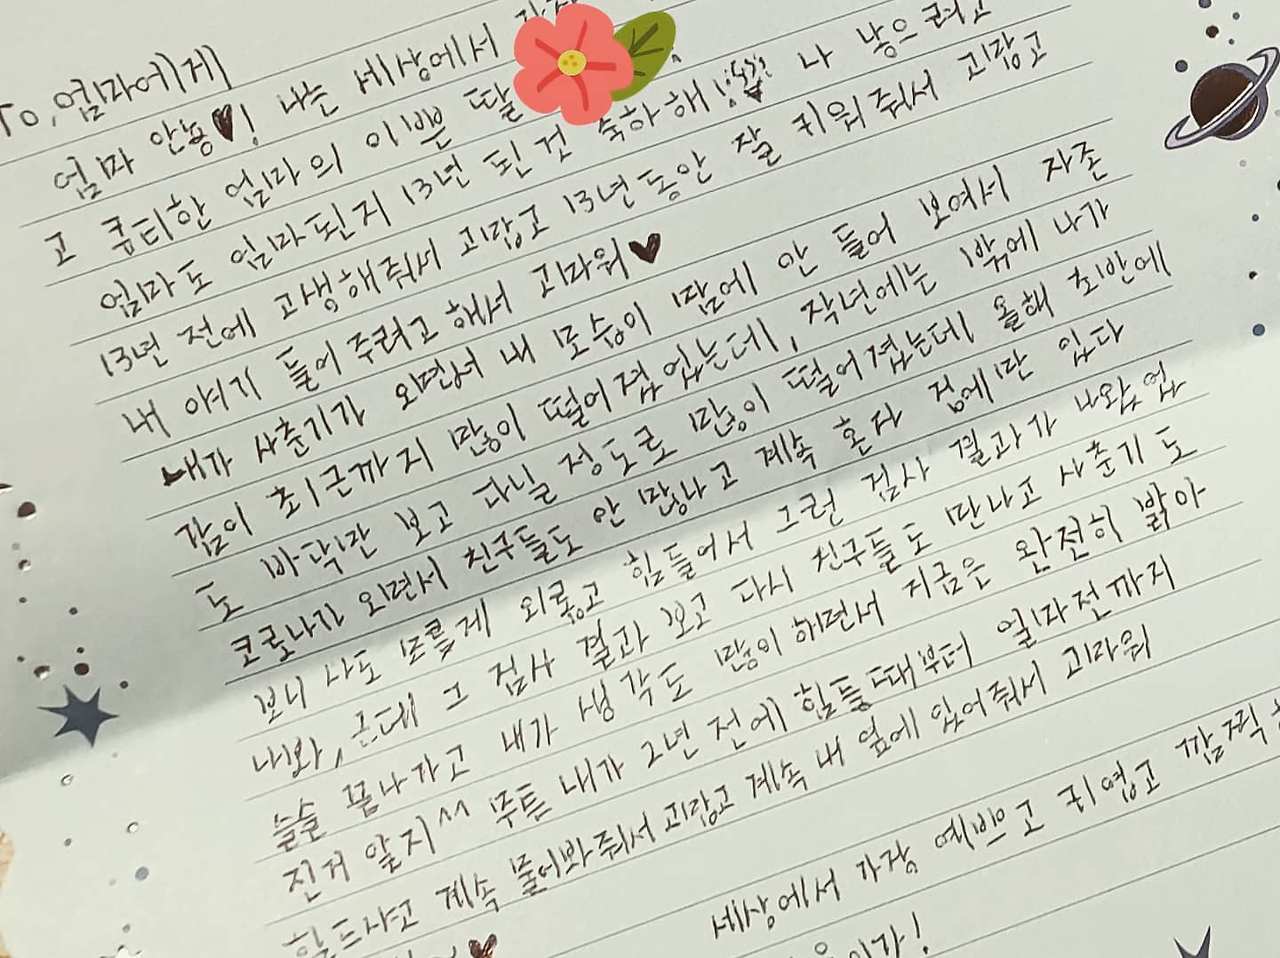 To, 엄마에게
엄마 안뇽♥! 나는 세상에서
고 큐티한 엄마의 이쁜 딸
엄마도 엄마된지 13년 된 것 축하해! 나 낳으려고
13년 전에 고생해줘서 고맙고 13년동안 잘 키워줘서 고맙고
내 얘기 들어주려고 해서 고마워♥
내가 사춘기가 오면서 내 모습이 맘에 안 들어 보여서 자존
감이 최근까지 많이 떨어졌었는데, 작년에는 밖에 나가
도 바닥만 보고 다닐 정도로 많이 떨어졌는데 올해 초반에
코로나가 오면서 친구들도 안 만나고 계속 혼자 집에만 있다
보니 나도 모르게 외롭고 힘들어서 그런 검사 결과가 나왔었
나봐, 근데 그 검사 결과 보고 다시 친구들도 만나고 사춘기도
슬슬 끝나가고 내가 생각도 많이 해면서 지금은 완전히 밝아
진거 알지^^ 무튼 내가 2년 전에 힘들때부터 얼마전까지
힘드냐고 계속 물어봐줘서 고맙고 계속 내 옆에 있어줘서 고마워
♥
세상에서 가장 예쁘고 귀엽고 깜찍